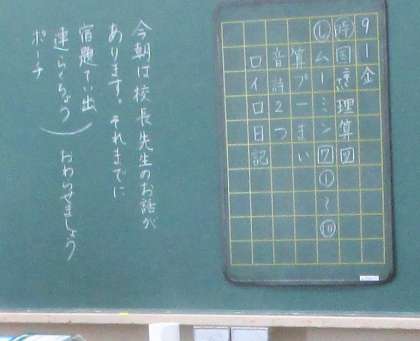 9－1金
時国<unclear>理算図
①ムーミン⑦①～⑩
算プ一まい
音詩2つ
口イロ日記
今朝は校長先生のお話が
あります。それまでに
宿題てい出
連らくちょう
おわらせましょう
ポーチ